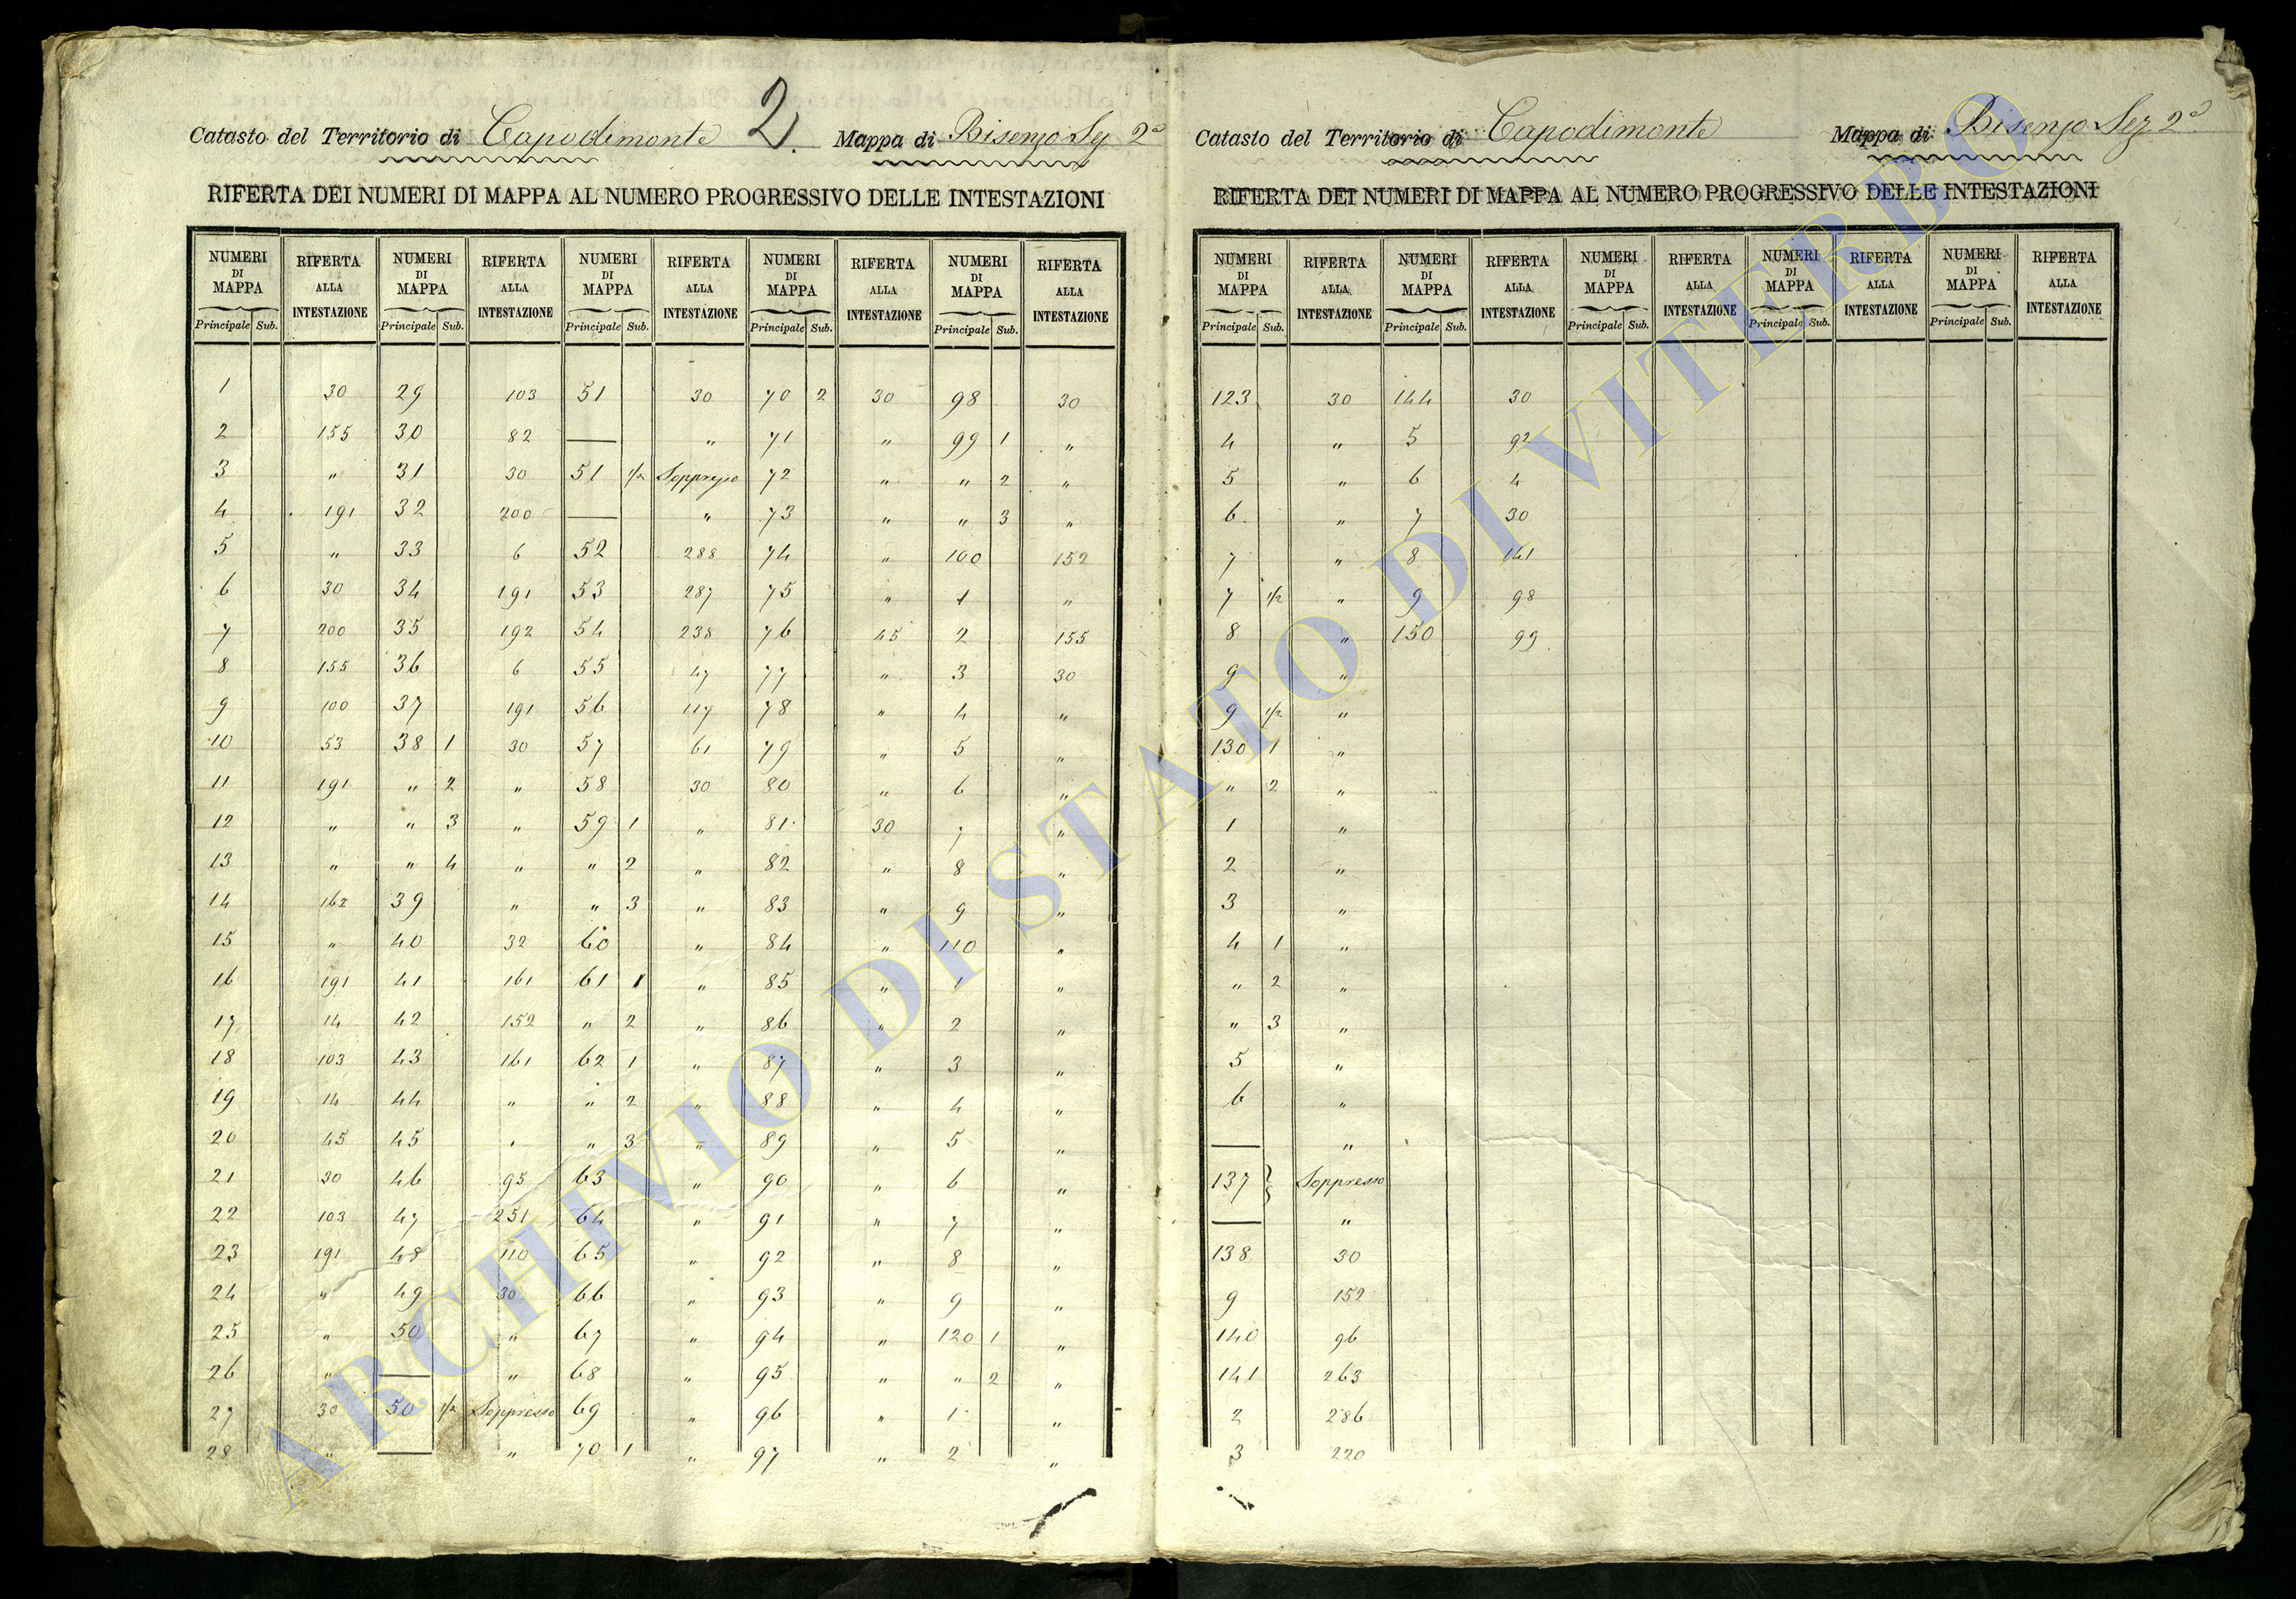 Catasto del Territorio di Capodimonte 2. Mappa di Bisenzo Sez 2ª
RIFERTA DEI NUMERI DI MAPPA AL NUMERO PROGRESSIVO DELLE INTESTAZIONI
NUMERI DI MAPPA RIFERTA ALLA INTESTAZIONE NUMERI DI MAPPA RIFERTA ALLA INTESTAZIONE NUMERI DI MAPPA RIFERTA ALLA INTESTAZIONE NUMERI DI MAPPA RIFERTA ALLA INTESTAZIONE NUMERI DI MAPPA RIFERTA ALLA INTESTAZIONE
Principale Sub. Principale Sub. Principale Sub. Principale Sub. Principale Sub.
1 30 29 103 51 30 70 2 30 98 30
2 155 30 82 — " 71 " 99 1 "
3 " 31 30 51 1/2 Soppresso 72 " " 2 "
4 191 32 200 — " 73 " " 3 "
5 " 33 6 52 288 74 " 100 152
6 30 34 191 53 287 75 " 1 "
7 200 35 192 54 238 76 45 2 155
8 155 36 6 55 47 77 " 3 30
9 100 37 191 56 117 78 " 4 "
10 53 38 1 30 57 61 79 " 5 "
11 191 " 2 " 58 30 80 " 6 "
12 " " 3 " 59 1 " 81 30 7 "
13 " " 4 " " 2 " 82 " 8 "
14 162 39 " " 3 " 83 " 9 "
15 " 40 32 60 " 84 " 110 "
16 191 41 161 61 1 " 85 " 1 "
17 14 42 152 " 2 " 86 " 2 "
18 103 43 161 62 1 " 87 " 3 "
19 14 44 " " 2 " 88 " 4 "
20 45 45 " " 3 " 89 " 5 "
21 30 46 95 63 " 90 " 6 "
22 103 47 251 64 " 91 " 7 "
23 191 48 110 65 " 92 " 8 "
24 " 49 30 66 " 93 " 9 "
25 " 50 " 67 " 94 " 120 1 "
26 " — " 68 " 95 " " 2 "
27 30 50 1/2 Soppresso 69 " 96 " 1 "
28 " — " 70 1 " 97 " 2 "
Catasto del Territorio di Capodimonte Mappa di Bisenzo Sez 2ª
RIFERTA DEI NUMERI DI MAPPA AL NUMERO PROGRESSIVO DELLE INTESTAZIONI
NUMERI DI MAPPA RIFERTA ALLA INTESTAZIONE NUMERI DI MAPPA RIFERTA ALLA INTESTAZIONE NUMERI DI MAPPA RIFERTA ALLA INTESTAZIONE NUMERI DI MAPPA RIFERTA ALLA INTESTAZIONE NUMERI DI MAPPA RIFERTA ALLA INTESTAZIONE
Principale Sub. Principale Sub. Principale Sub. Principale Sub. Principale Sub.
123 30 144 30
4 " 5 92
5 " 6 4
6 " 7 30
7 " 8 141
7 1/2 " 9 98
8 " 150 99
9 "
9 1/2 "
130 1 "
" 2 "
1 "
2 "
3 "
4 1 "
" 2 "
" 3 "
5 "
6 "
— "
137 Soppresso
— "
138 30
9 152
140 96
141 263
2 286
3 220
ARCHIVIO DI STATO DI VITERBO